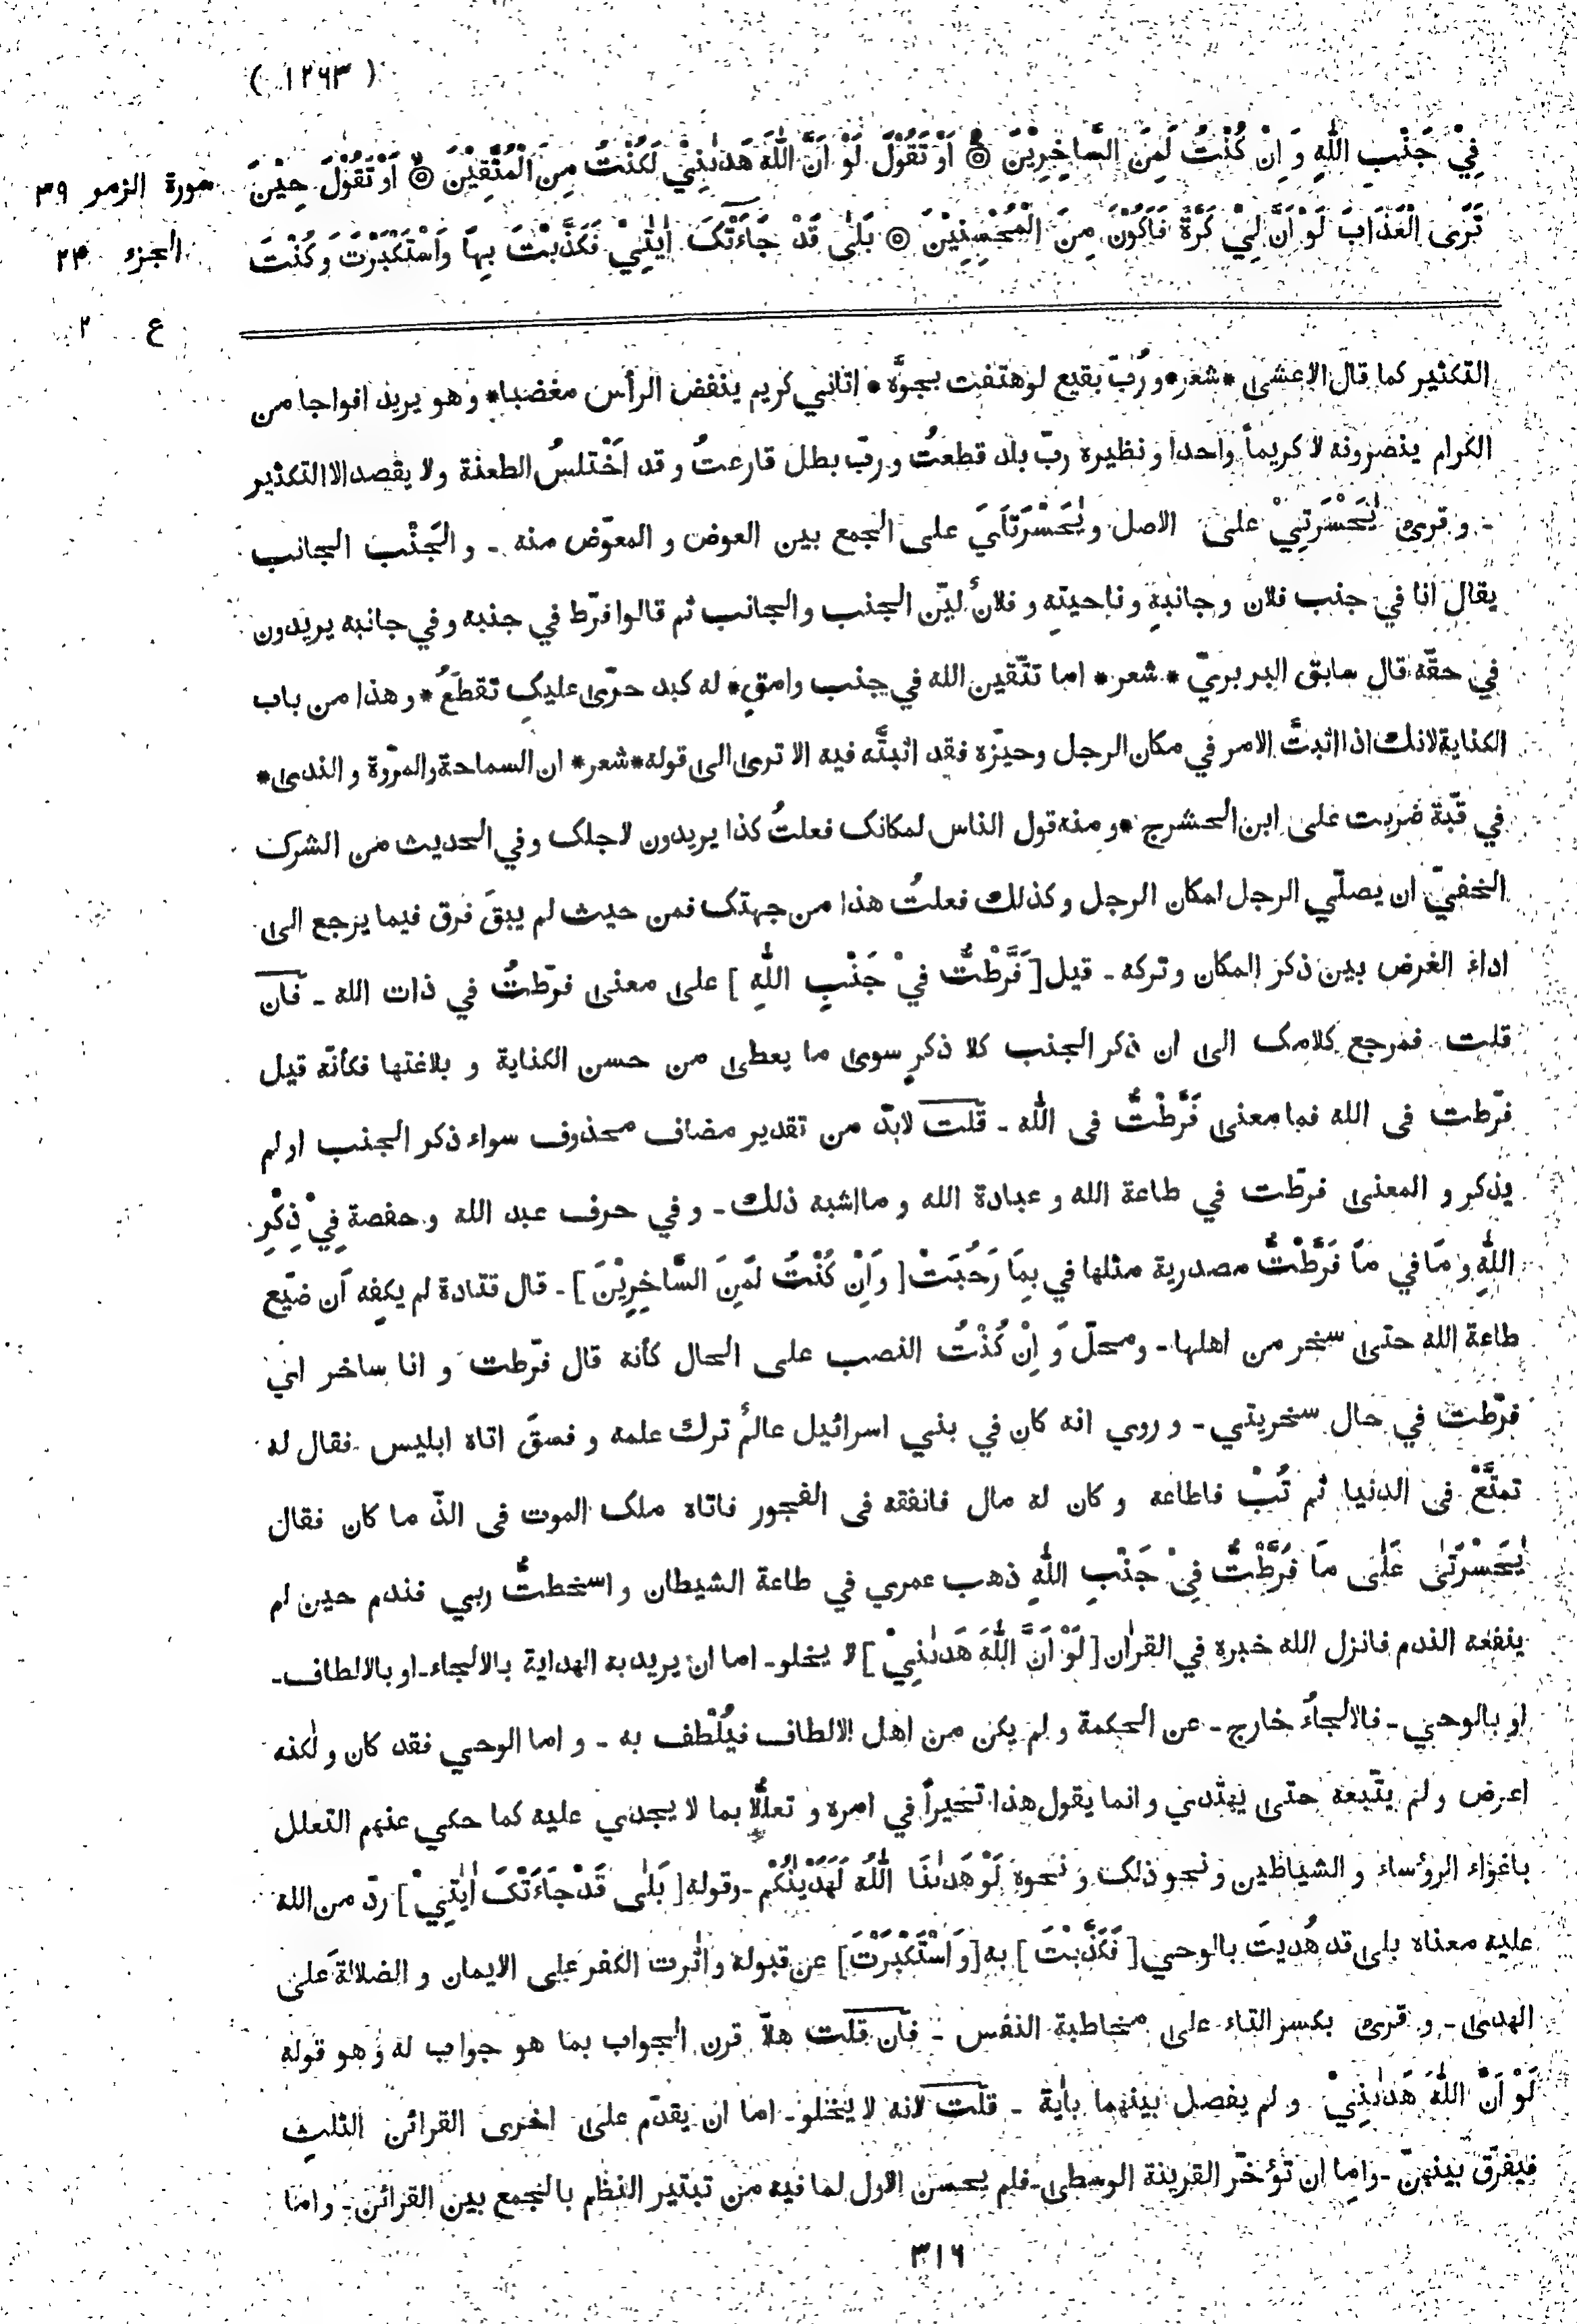 ( ١٢٦٣ )
فِيْ جَنْبِ اللّٰهِ وَ اِنْ كُنْتُ لَمِنَ السَّاخِرِيْنَ ۞ اَوْ تَقُوْلَ لَوْ اَنَّ اللّٰهَ هَدٰىنِيْ لَكُنْتُ مِنَ الْمُتَّقِيْنَ ۞ اَوْ تَقُوْلَ حِيْنَ
سورة الزمر ٣٩
تَرَى الْعَذَابَ لَوْ اَنَّ لِيْ كَرَّةً فَاَكُوْنَ مِنَ الْمُحْسِنِيْنَ ۞ بَلٰى قَدْ جَآءَتْكَ اٰيٰتِيْ فَكَذَّبْتَ بِهَا وَاسْتَكْبَرْتَ وَ كُنْتَ
الجزء ٢٤
ع ٢
التكثير كما قال الاعشى * شعر * و رُبّ بقيع لو هتفت بجوّه * اتاني كريم ينفض الرأس مغضبا * وهو يريد افواجا من
الكرام ينصرونه لا كريماً واحدا و نظيره ربّ بلد قطعتُ و ربّ بطل قارعتُ و قد اَخْتلسُ الطعنة ولا يقصد الا التكثير
- و قرئ يٰحَسْرَتِيْ على الاصل و يٰحَسْرَتَايَ على الجمع بين العوض و المعوّض منه - و الجَنْب الجانب
يقال انا في جنب فلان و جانبهٖ و ناحيتهٖ و فلانٌ ليّن الجنب و الجانب ثم قالوا فرّط في جنبه و في جانبه يريدون
في حقّه قال سابق البربريّ * شعر * اما تتّقين الله في جنب وامقٍ * له كبد حرّى عليكِ تقطّعُ * و هذا من باب
الكناية لانك اذا اثبتَّ الامر في مكان الرجل وحيّزه فقد اثبتَّه فيه الا ترى الى قوله * شعر * ان السماحة والمروّة و الندى *
في قبّة ضُربت على ابن الحشرج * و منه قول الناس لمكانك فعلتُ كذا يريدون لاجلك و في الحديث من الشرك
الخفيّ ان يصلّي الرجل لمكان الرجل و كذلك فعلتُ هذا من جهتك فمن حيث لم يبقَ فرق فيما يرجع الى
اداء الغرض بين ذكر المكان و تركه - قيل [ فَرَّطْتُّ فِيْ جَنْبِ اللّٰهِ ] على معنى فرّطتُ في ذات الله - فان
قلت فمرجع كلامك الى ان ذكر الجنب كلا ذكرٍ سوى ما يعطى من حسن الكناية و بلاغتها فكأنّه قيل
فرّطت فى الله فما معنى فَرَّطْتُّ فى اللّٰه - قلت لابدّ من تقدير مضاف محذوف سواء ذكر الجنب او لم
يذكر و المعنى فرّطت في طاعة الله و عبادة الله و ما اشبه ذلك - و في حرف عبد الله و حفصة فِيْ ذِكْرِ
اللّٰهِ و مَا في مَا فَرَّطْتُّ مصدرية مثلها في بِمَا رَحُبَتْ [ وَ اِنْ كُنْتُ لَمِنَ السَّاخِرِيْنَ ] - قال قتادة لم يكفه اَن ضيّع
طاعة الله حتى سخر من اهلها - و محلّ وَ اِنْ كُنْتُ النصب على الحال كأنه قال فرّطت و انا ساخر اي
فرّطت في حال سخريتي - و روي انه كان في بني اسرائيل عالمٌ ترك علمه و فسقَ اتاه ابليس فقال له
تمتَّعْ فى الدنيا ثم تُبْ فاطاعه و كان له مال فانفقه فى الفجور فاتاه ملك الموت فى الذّ ما كان فقال
يٰحَسْرَتٰى عَلٰى مَا فَرَّطْتُّ فِيْ جَنْبِ اللّٰهِ ذهب عمري في طاعة الشيطان و اسخطتُّ ربي فندم حين لم
ينفعه الندم فانزل الله خبره في القراٰن [ لَوْ اَنَّ اللّٰهَ هَدٰىنِيْ ] لا يخلو - اما ان يريد به الهداية بالالجاء - او بالالطاف -
او بالوحي - فالالجاءُ خارج - عن الحكمة و لم يكن من اهل الالطاف فيُلْطف به - و اما الوحي فقد كان و لٰكنه
اعرض و لم يتّبعه حتى يهتدي و انما يقول هذا تحيراً في امره و تعلُّلا بما لا يجدي عليه كما حكي عنهم التعلل
باغواء الرؤساء و الشياطين و نحو ذلك و نحوه لَوْ هَدٰىنَا اللّٰهُ لَهَدَيْنٰكُمْ - و قوله [ بَلٰى قَدْ جَآءَتْكَ اٰيٰتِيْ ] ردّ من الله
عليه معناه بلى قد هُديتَ بالوحي [ فَكَذَّبْتَ ] به [ وَ اسْتَكْبَرْتَ ] عن قبوله و اٰثرت الكفر على الايمان و الضلالة على
الهدى - و قرئ بكسر التاء على مخاطبة النفس - فان قلت هلّا قرن الجواب بما هو جواب له و هو قوله
لَوْ اَنَّ اللّٰهَ هَدٰىنِيْ و لم يفصل بينهما باٰية - قلت لانه لا يخلو - اما ان يقدّم على اخرى القرائن الثلٰث
فيفرّق بينهنّ - واما ان تؤخّر القرينة الوسطى - فلم يحسن الاول لما فيه من تبتير النظم بالجمع بين القرائن - و اما
٣١٦